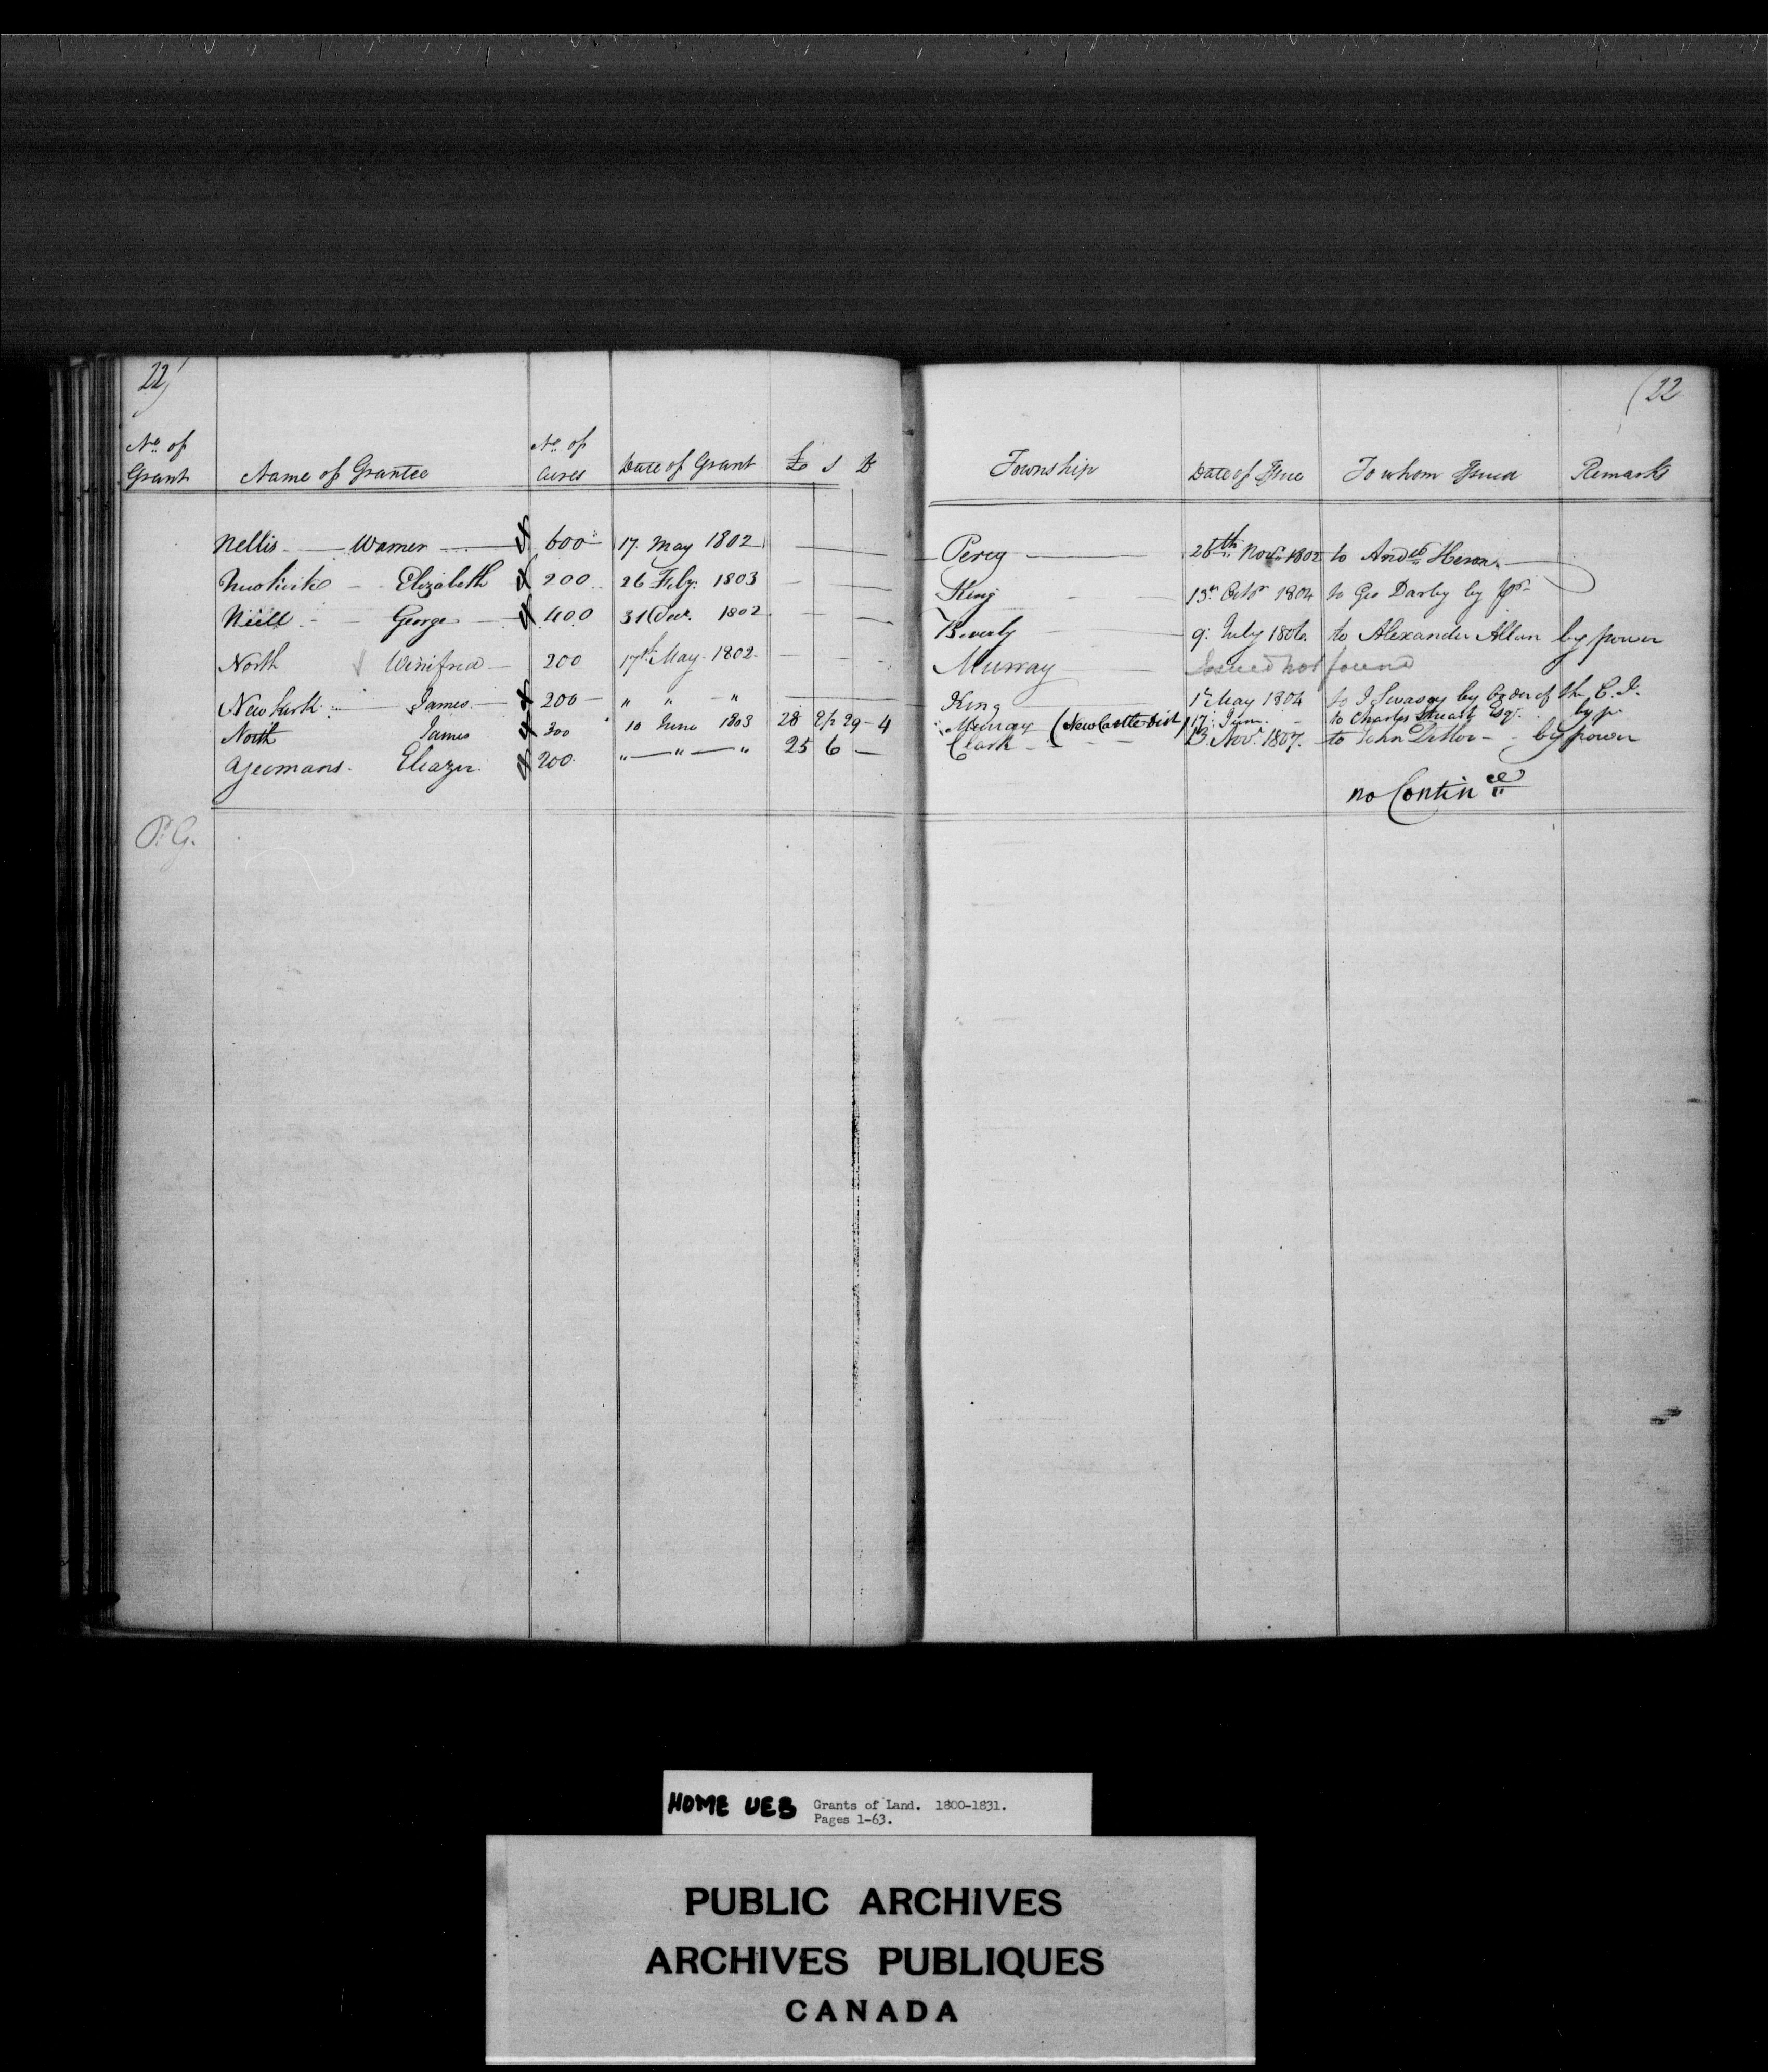 22
(22
No. of Grant Name of Grantee No. of Acres Date of Grant £ S D Township Date of Issue To whom Issued Remarks
Nellis Warner 600 17. May 1802 Percy 26th Novr. 1802 to Andw. Heron
Newkirk Elizabeth 200 26 Feby. 1803 King 13th Octr. 1804 to Geo Darby by pr.
Neill George 400 31 Decr. 1802 Beverly 9. July 1806. to Alexander Allan by power
North Winifred 200 17th May. 1802. Murray Issued not found
Newkirk James 200 " " " King 1st May 1804 to J Swasey by Order of the C. J.
North James 300 10 June 1803 28 Murray (New Castle Dist) 17. June. to Charles Stuart Esqr. by pr
Yeomans. Eleazer. 200. " " " 25 6 Clark 13. Novr. 1807. to John by power
no Contince
P. G.
HOME UEB Grants of Land. 1800-1831.
Pages 1-63.
PUBLIC ARCHIVES
ARCHIVES PUBLIQUES
CANADA